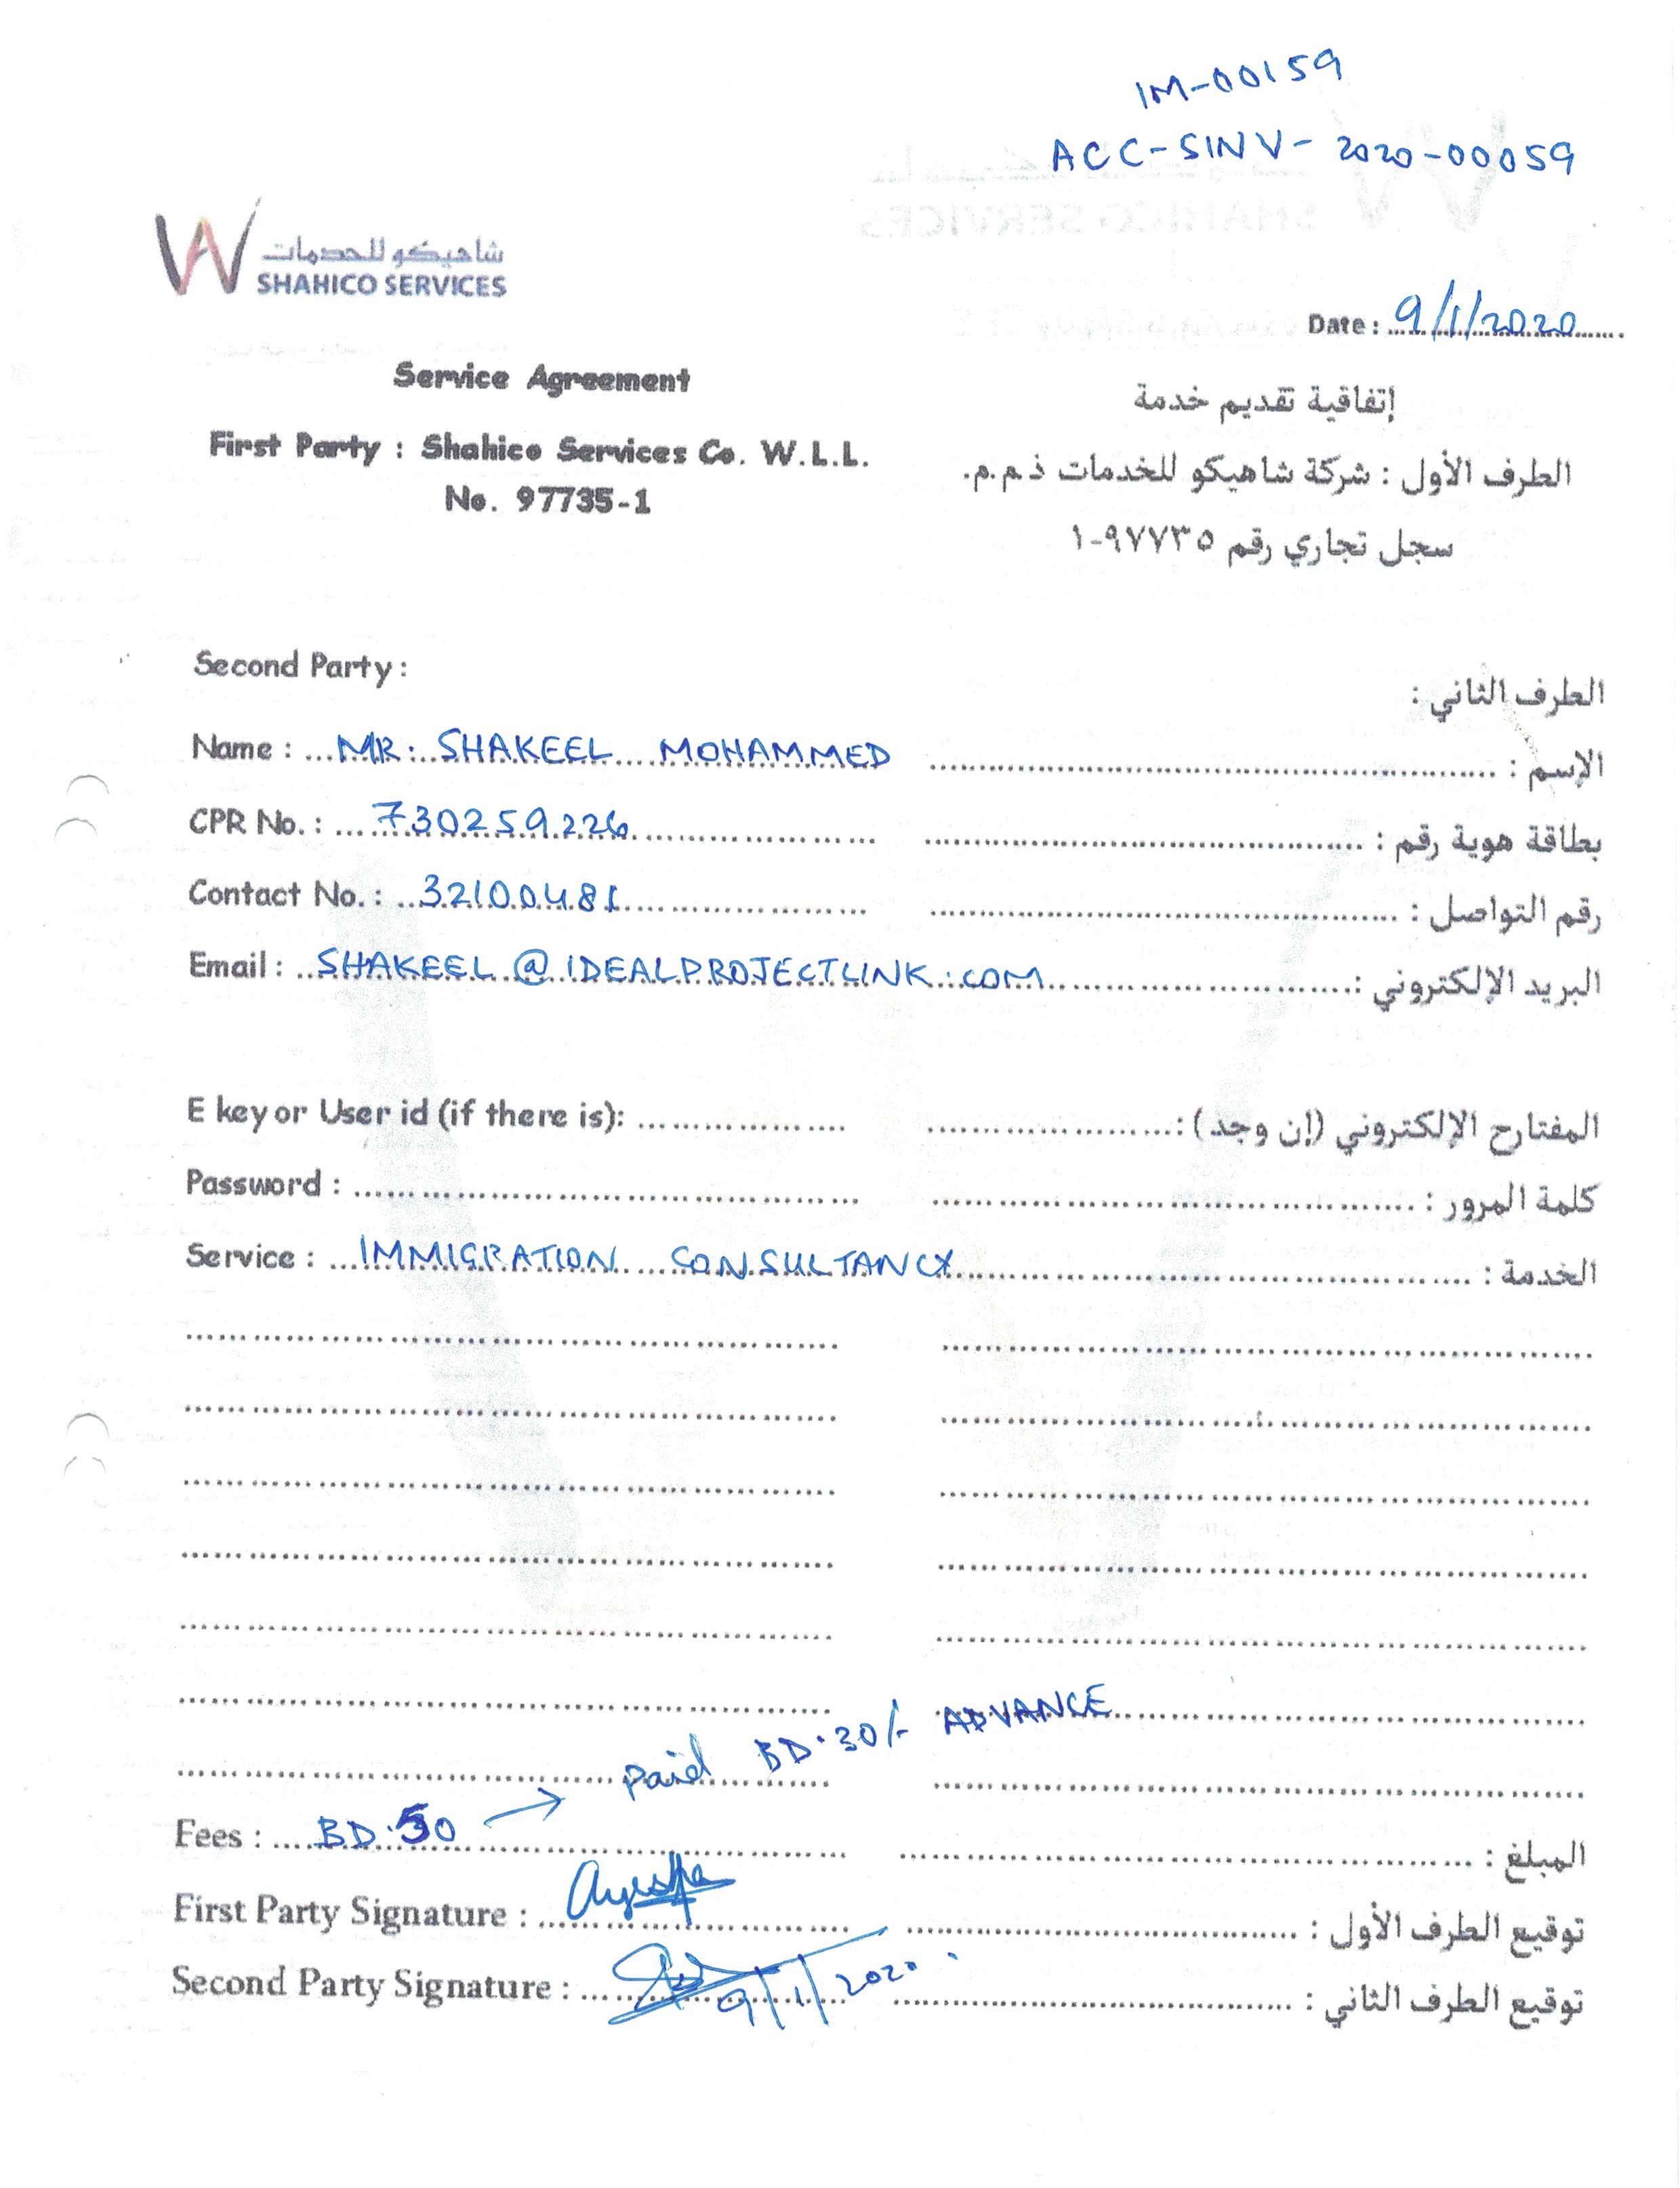 IM-00159
ACC-SINV-2020-00059
شاهيكو للخدمات
SHAHICO SERVICES
Date : 9/1/2020
Service Agreement
إتفاقية تقديم خدمة
First Party : Shahico Services Co. W.L.L.
الطرف الأول : شركة شاهيكو للخدمات ذ.م.م.
No. 97735-1
سجل تجاري رقم ٩٧٧٣٥-١
Second Party :
الطرف الثاني :
Name : MR. SHAKEEL MOHAMMED
الإسم :
CPR No. : 730259226
بطاقة هوية رقم :
Contact No. : 32100481
رقم التواصل :
Email : SHAKEEL@IDEALPROJECTLINK.COM
البريد الإلكتروني :
E key or User id (if there is):
المفتارح الإلكتروني (إن وجد) :
Password :
كلمة المرور :
Service : IMMIGRATION CONSULTANCY
الخدمة :
paid BD.30/- ADVANCE
Fees : BD.50 →
المبلغ :
First Party Signature : Ayesha
توقيع الطرف الأول :
Second Party Signature : 9/1/2020
توقيع الطرف الثاني :